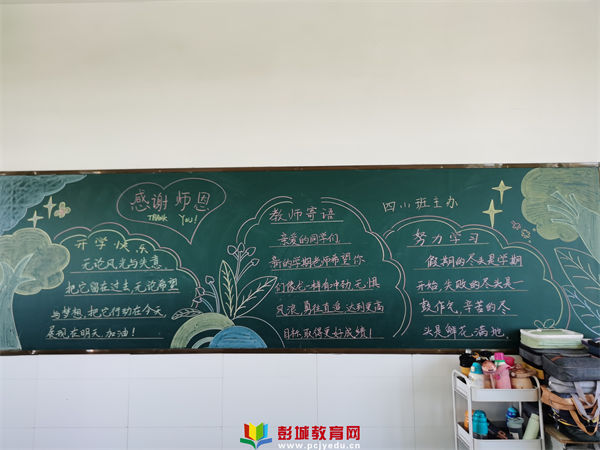 感谢师恩
THANK YOU!
开学快乐
无论风光与失意
把它留在过去,无论希望
与梦想,把它行动在今天
展现在明天,加油!
教师寄语
亲爱的同学们
新的学期老师希望你
们像龙一样向冲劲无惧
风浪,勇往直追,达到更高
目标,取得更好成绩!
四(1)班主办
努力学习
假期的尽头是学期
开始,失败的尽头是一
鼓作气,辛苦的尽
头是鲜花满地
彭城教育网
www.pcjyedu.cn